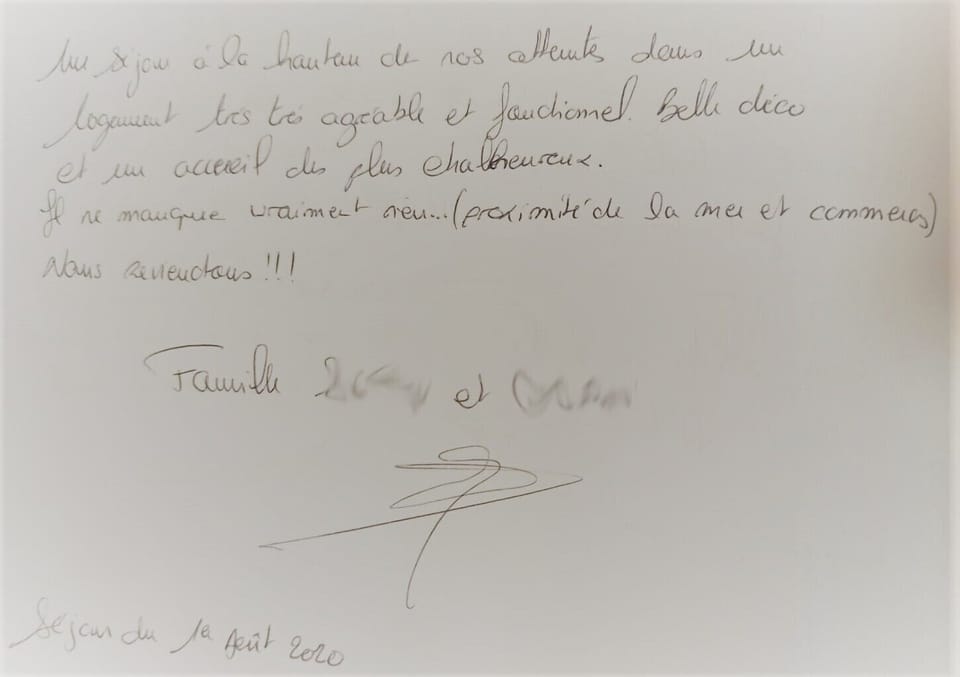 Un séjour à la hauteur de nos attentes dans un
logement très très agréable et fonctionnel. Belle déco
et un accueil des plus chaleureux.
Il ne manque vraiment rien... (proximité de la mer et commerces)
Nous reviendrons !!!
Famille et
Séjour du 1er Août 2020